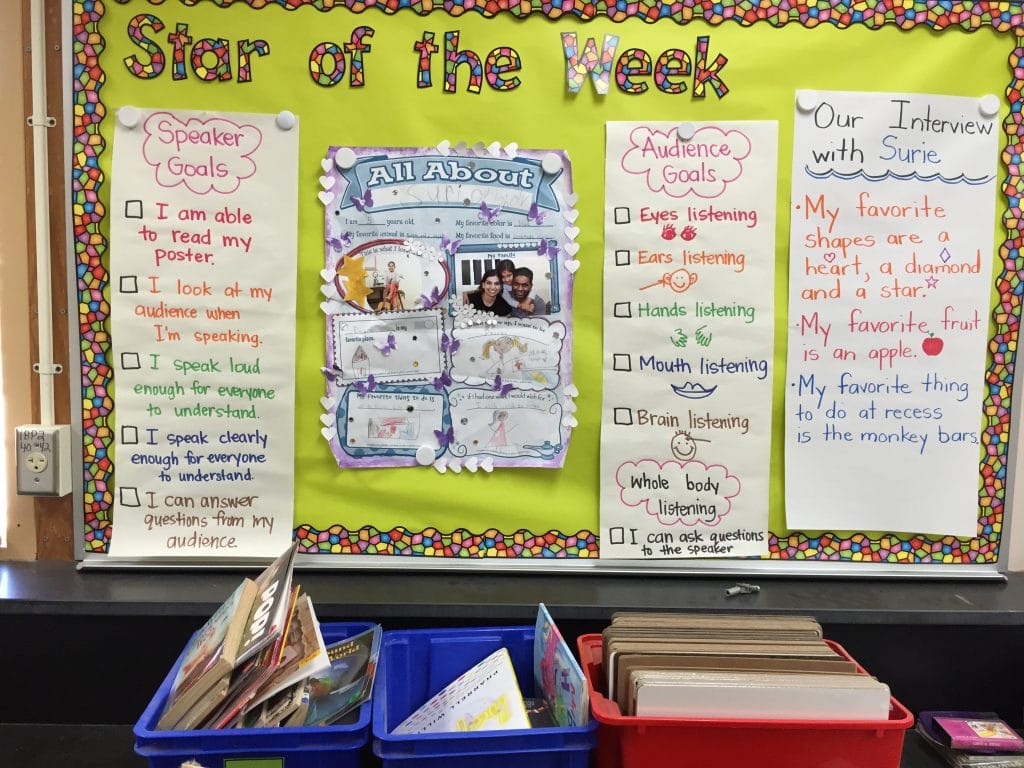 Star of the Week
Speaker
Goals
I am able
to read my
poster.
I look at my
audience when
I'm speaking.
I speak loud
enough for everyone
to understand.
I speak clearly
enough for everyone
to understand.
I can answer
questions from my
audience.
All About
I am years old.
My favorite color is
My favorite animal is
My favorite food is
This is what I look
My Family
is my
favorite place.
up, I want to be
My favorite thing to do is
If I had one wish, I would wish for
Audience
Goals
Eyes listening
Ears listening
Hands listening
Mouth listening
Brain listening
whole body
listening
I can ask questions
to the speaker
Our Interview
with Surie
• My favorite
shapes are a
heart, a diamond
and a star.
• My favorite fruit
is an apple.
• My favorite thing
to do at recess
is the monkey bars.
18P2
40 42
POP!
World
PHARRELL